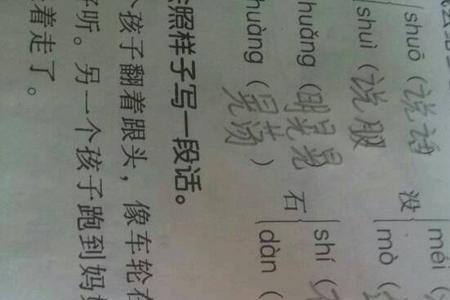 shuō (说话) 没 méi (
shuì (说服) mò (
huǎng (明晃晃) 石 shí (
huàng (晃荡) dàn (
照样子写一段话。
个孩子翻着跟头，像车轮在
好听。另一个孩子跑到妈
着走了。